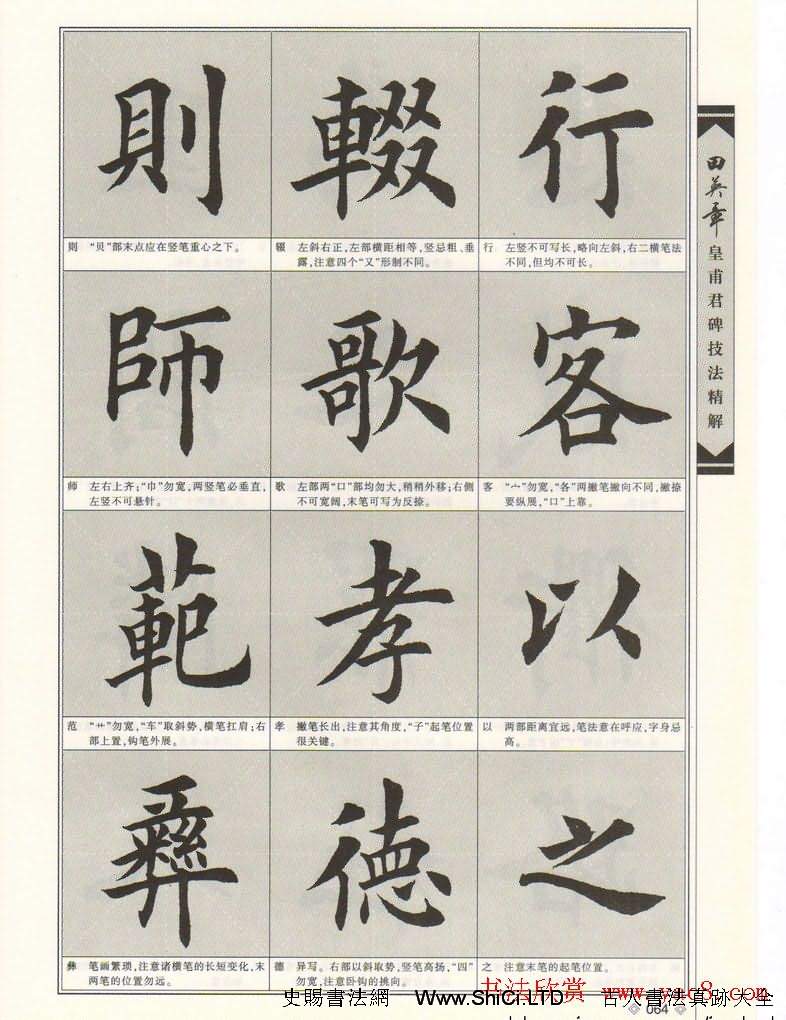 行
輟
則
行 左竖不可写长，略向左斜，右二横笔法
不同，但均不可长。
辍 左斜右正，左部横距相等，竖忌粗、垂
露，注意四个“又”形制不同。
则 “贝”部末点应在竖笔重心之下。
客
歌
師
客 “宀”勿宽，“各”两撇笔撇向不同，撇捺
要纵展，“口”上靠。
歌 左部两“口”部均勿大，稍稍外移；右侧
不可宽阔，末笔可写为反捺。
师 左右上齐；“巾”勿宽，两竖笔必垂直，
左竖不可悬针。
以
孝
範
以 两部距离宜远，笔法意在呼应，字身忌
高。
孝 撇笔长出，注意其角度，“子”起笔位置
很关键。
范 “艹”勿宽，“车”取斜势，横笔扛肩；右
部上置，钩笔外展。
之
德
彝
之 注意末笔的起笔位置。
德 异写。右部以斜取势，竖笔高扬，“四”
勿宽，注意卧钩的挑向。
彝 笔画繁琐，注意诸横笔的长短变化，末
两笔的位置勿远。
田英章皇甫君碑技法精解
史賜書法網 Www.ShiCi.LTD 古人書法真跡大全
064